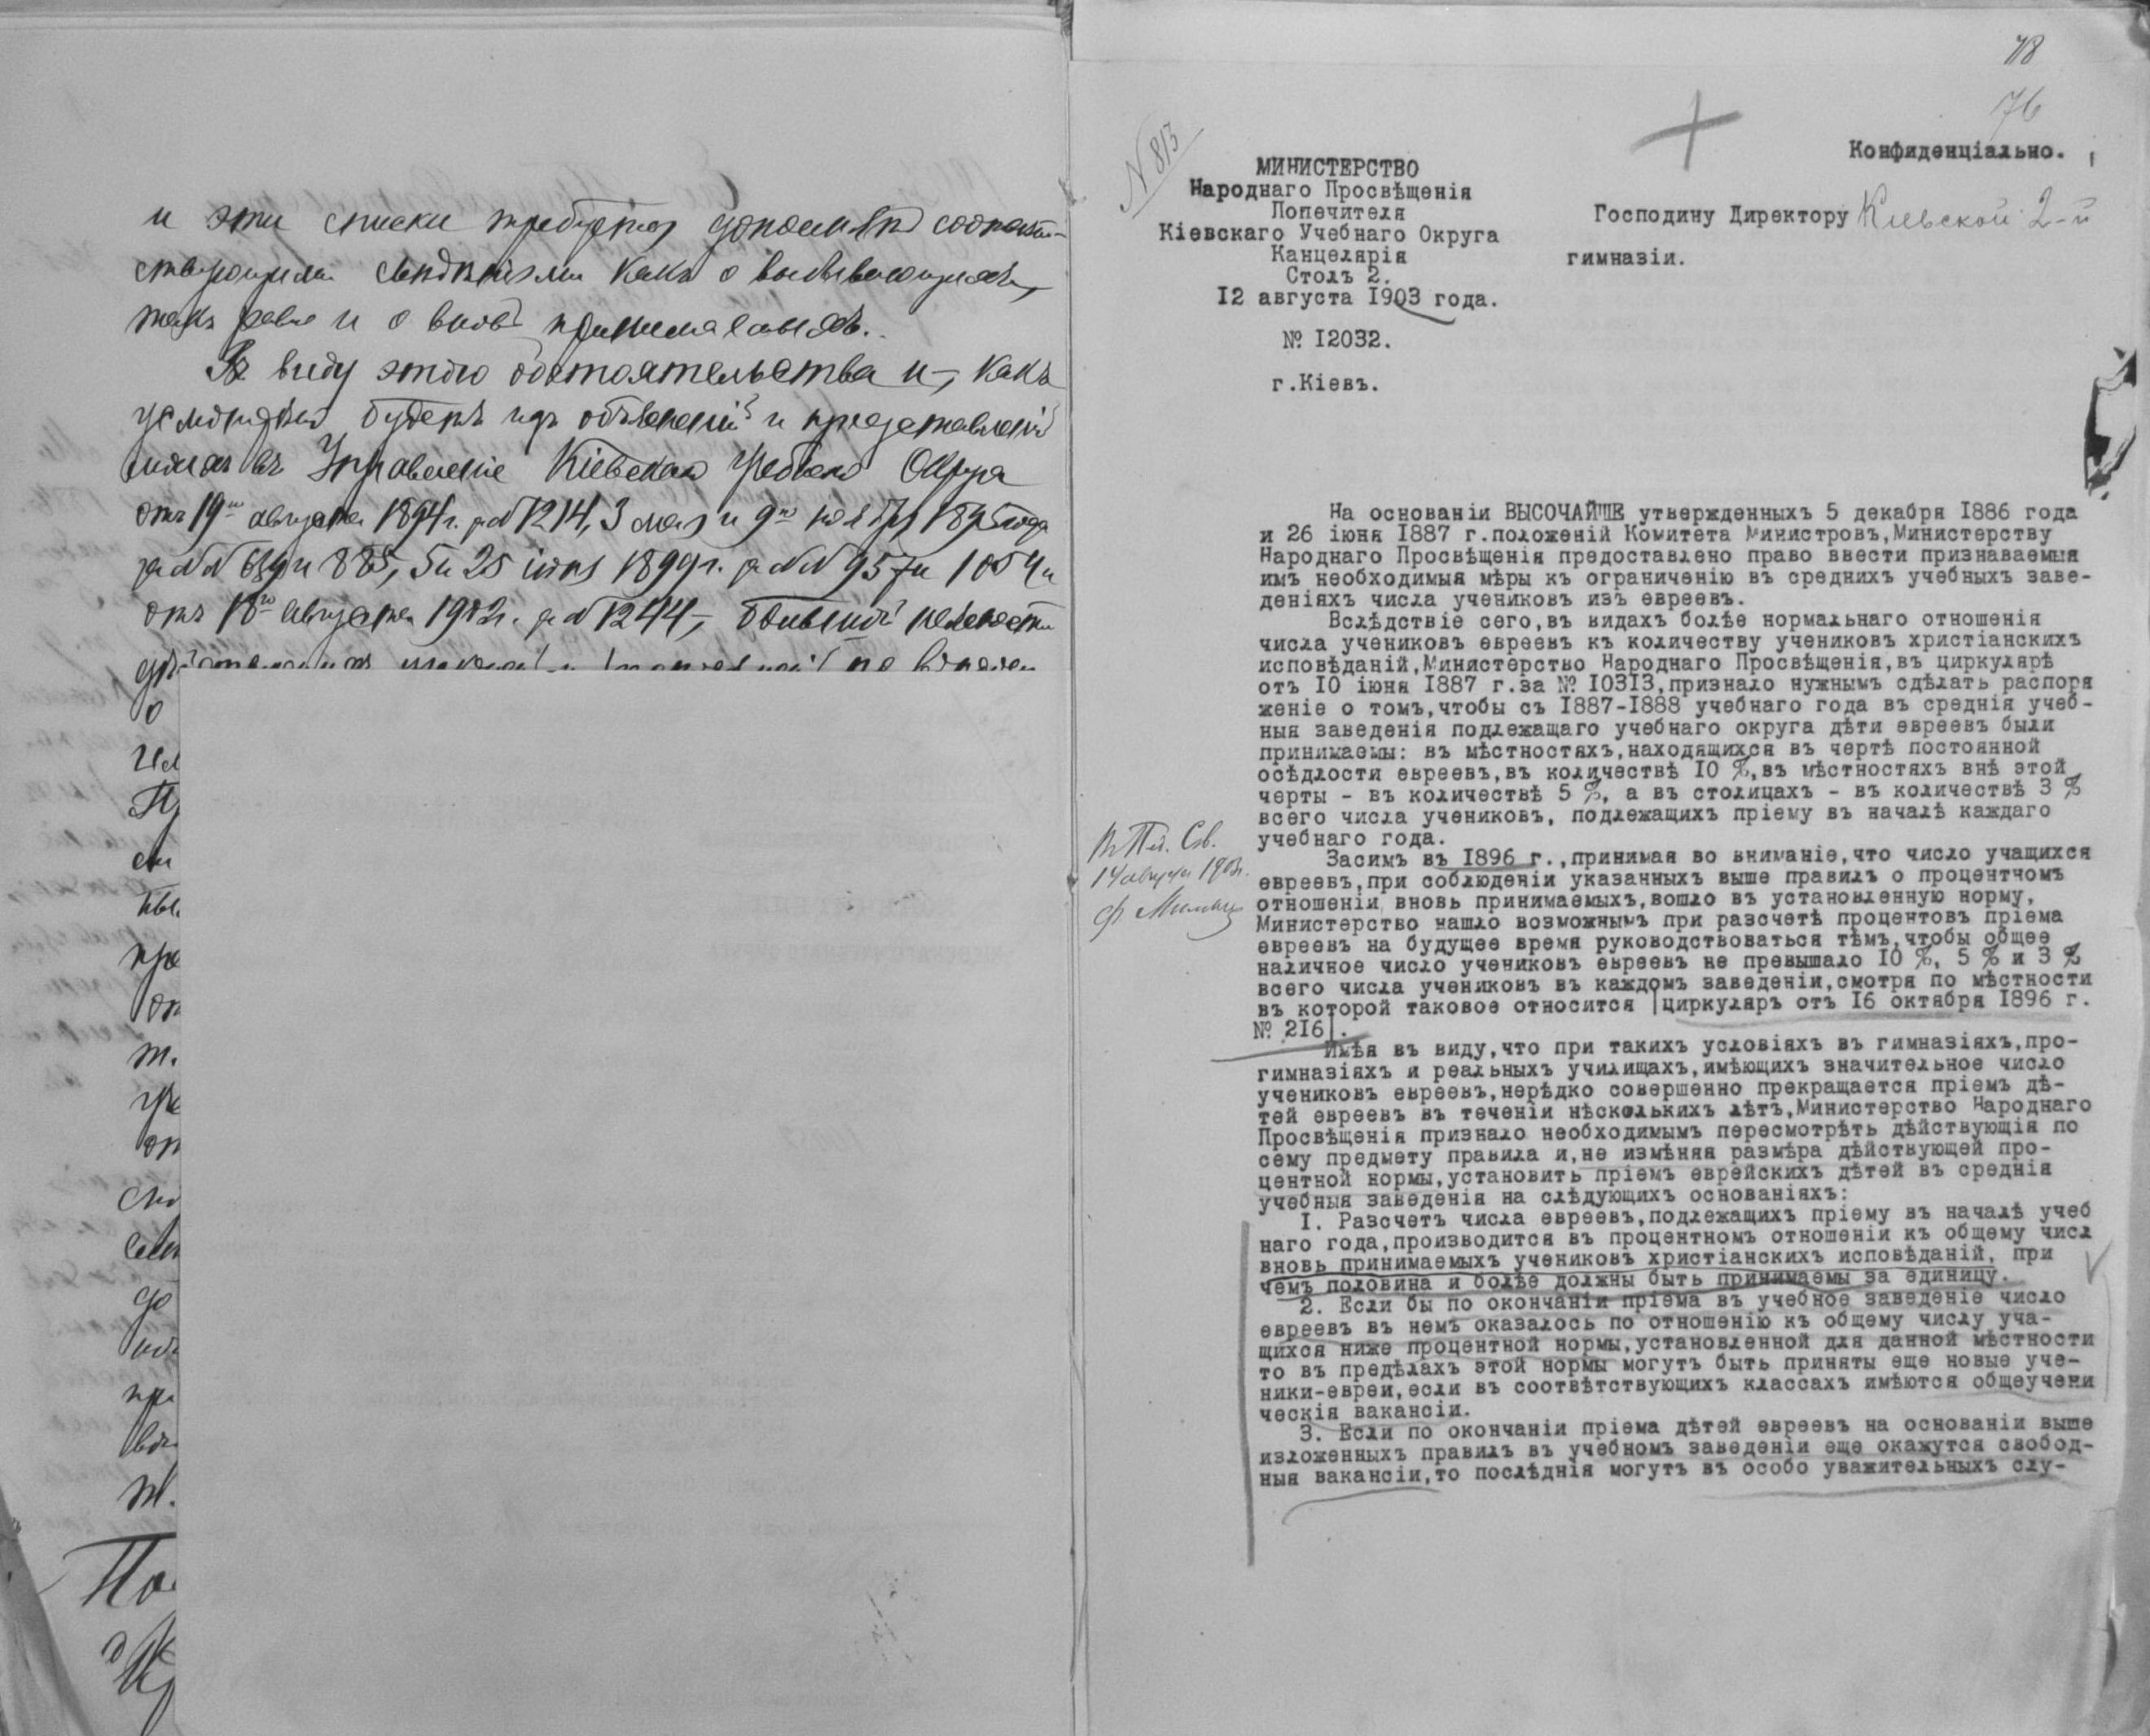 и эти списки требуется дополнять соответ-
ствующими свѣдѣніями какъ о выбывающихъ,
такъ равно и о вновь принимаемыхъ.
Въ виду этого обстоятельства и, какъ
будетъ изъ объясненій и представленій
въ Управленіе Кіевскаго Учебнаго Округа
отъ 19го августа 1894 г. за № 1214, 3 мая и 9го ноября 1895 года
за №№ 639 и 885, 5 и 25 іюня 1899 г. за №№ 957 и 1054 и
отъ 18го августа 1902 г. за № 1244,
о
Пу
пре
от
т.
уче
от
до
при
т.
По
78
76
N 813
Конфиденціально.
МИНИСТЕРСТВО
Народнаго Просвѣщенія
Попечителя
Кіевскаго Учебнаго Округа
Канцелярія
Столъ 2.
12 августа 1903 года.
№ 12032.
г.Кіевъ.
Господину Директору Кіевской 2-й
гимназіи.
На основаніи ВЫСОЧАЙШЕ утвержденныхъ 5 декабря 1886 года
и 26 іюня 1887 г.положеній Комитета Министровъ,Министерству
Народнаго Просвѣщенія предоставлено право ввести признаваемыя
имъ необходимыя мѣры къ ограниченію въ среднихъ учебныхъ заве-
деніяхъ числа учениковъ изъ евреевъ.
Вслѣдствіе сего,въ видахъ болѣе нормальнаго отношенія
числа учениковъ евреевъ къ количеству учениковъ христіанскихъ
исповѣданій,Министерство Народнаго Просвѣщенія,въ циркулярѣ
отъ 10 іюня 1887 г.за № 10313,признало нужнымъ сдѣлать распоря
женіе о томъ,чтобы съ 1887-1888 учебнаго года въ среднія учеб-
ныя заведенія подлежащаго учебнаго округа дѣти евреевъ были
принимаемы: въ мѣстностяхъ,находящихся въ чертѣ постоянной
осѣдлости евреевъ,въ количествѣ 10 %,въ мѣстностяхъ внѣ этой
черты - въ количествѣ 5 %, а въ столицахъ - въ количествѣ 3 %
всего числа учениковъ, подлежащихъ пріему въ началѣ каждаго
учебнаго года.
Въ Пед. Сов.
14 августа 1903 г.
Засимъ въ 1896 г.,принимая во вниманіе,что число учащихся
евреевъ,при соблюденіи указанныхъ выше правилъ о процентномъ
отношеніи вновь принимаемыхъ,вошло въ установленную норму,
Министерство нашло возможнымъ при разсчетѣ процентовъ пріема
евреевъ на будущее время руководствоваться тѣмъ,чтобы общее
наличное число учениковъ евреевъ не превышало 10 %, 5 % и 3 %
всего числа учениковъ въ каждомъ заведеніи,смотря по мѣстности
въ которой таковое относится |циркуляръ отъ 16 октября 1896 г.
№ 216|.
Имѣя въ виду,что при такихъ условіяхъ въ гимназіяхъ,про-
гимназіяхъ и реальныхъ училищахъ,имѣющихъ значительное число
учениковъ евреевъ,нерѣдко совершенно прекращается пріемъ дѣ-
тей евреевъ въ теченіи нѣсколькихъ лѣтъ,Министерство Народнаго
Просвѣщенія признало необходимымъ пересмотрѣть дѣйствующія по
сему предмету правила и,не измѣняя размѣра дѣйствующей про-
центной нормы,установить пріемъ еврейскихъ дѣтей въ среднія
учебныя заведенія на слѣдующихъ основаніяхъ:
I. Разсчетъ числа евреевъ,подлежащихъ пріему въ началѣ учеб
наго года,производится въ процентномъ отношеніи къ общему числ
вновь принимаемыхъ учениковъ христіанскихъ исповѣданій, при
чемъ половина и болѣе должны быть принимаемы за единицу.
2. Если бы по окончаніи пріема въ учебное заведеніе число
евреевъ въ немъ оказалось по отношенію къ общему числу уча-
щихся ниже процентной нормы,установленной для данной мѣстности
то въ предѣлахъ этой нормы могутъ быть приняты еще новые уче-
ники-евреи,если въ соотвѣтствующихъ классахъ имѣются общеучени
ческія вакансіи.
3. Если по окончаніи пріема дѣтей евреевъ на основаніи выше
изложенныхъ правилъ въ учебномъ заведеніи еще окажутся свобод-
ныя вакансіи,то послѣднія могутъ въ особо уважительныхъ слу-